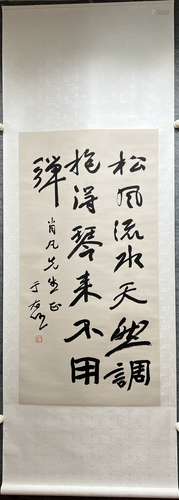 松風流水天然調
抱得琴来不用
彈
肖凡先生正
于右任